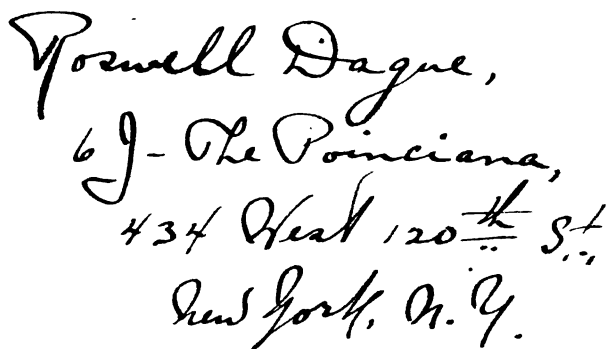 Roswell Dague,
6 J - The Poinciana,
434 West 120th St.,
New York, N. Y.